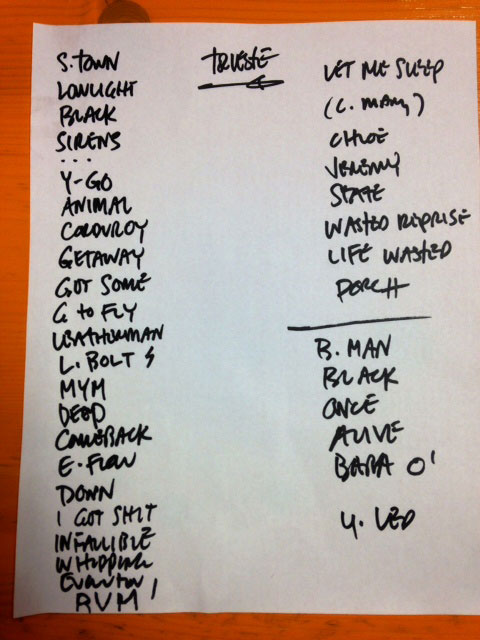 TRIESTE
S. TOWN
LOWLIGHT
BLACK
SIRENS
...
Y-GO
ANIMAL
CORDUROY
GETAWAY
GOT SOME
G to FLY
LEATHERMAN
L. BOLT
MYM
DEEP
COMEBACK
E. FLOW
DOWN
I GOT SHIT
INFALLIBLE
WHIPPING
RVM
LET ME SLEEP
(C. MAMY)
CHLOE
JEREMY
STATE
WASTED REPRISE
LIFE WASTED
PORCH
B. MAN
BLACK
ONCE
ALIVE
BABA O'
Y. LED